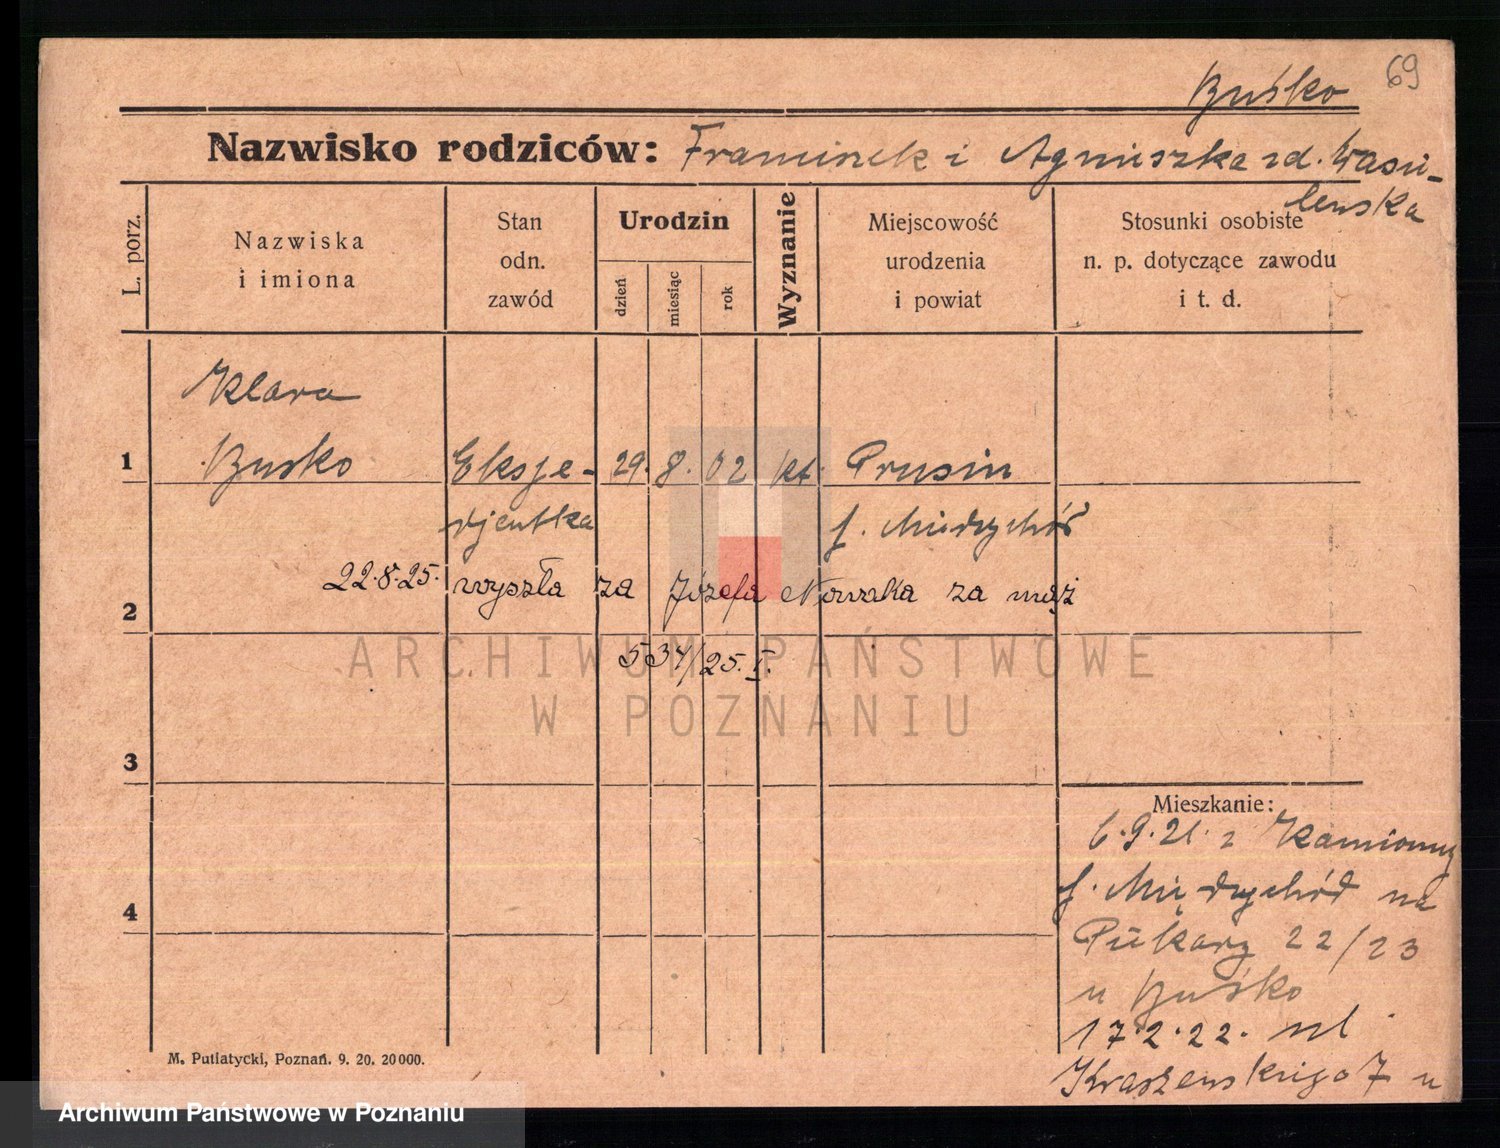 69
Buśko
Nazwisko rodziców: Franciszek i Agnieszka zd. Wasie-
lewska
L. porz.
Nazwiska
i imiona
Stan
odn.
zawód
Urodzin
dzień
miesiąc
rok
Wyznanie
Miejscowość
urodzenia
i powiat
Stosunki osobiste
n. p. dotyczące zawodu
i t. d.
Klara
1 Busko Ekspe- 29. 8. 02 kt. Prusin
djentka p. Międzychód
22.8.25. wyszła za Józefa Nowaka za mąż
2
534/25. I.
3
Mieszkanie:
6.9.21. z Kamionny
p. Międzychód na
4
Piekary 22/23
u Buśko
17.2.22. ul.
Kraszewskiego 7 u
M. Putiatycki, Poznań. 9. 20. 20000.
ARCHIWUM PAŃSTWOWE
W POZNANIU
Archiwum Państwowe w Poznaniu